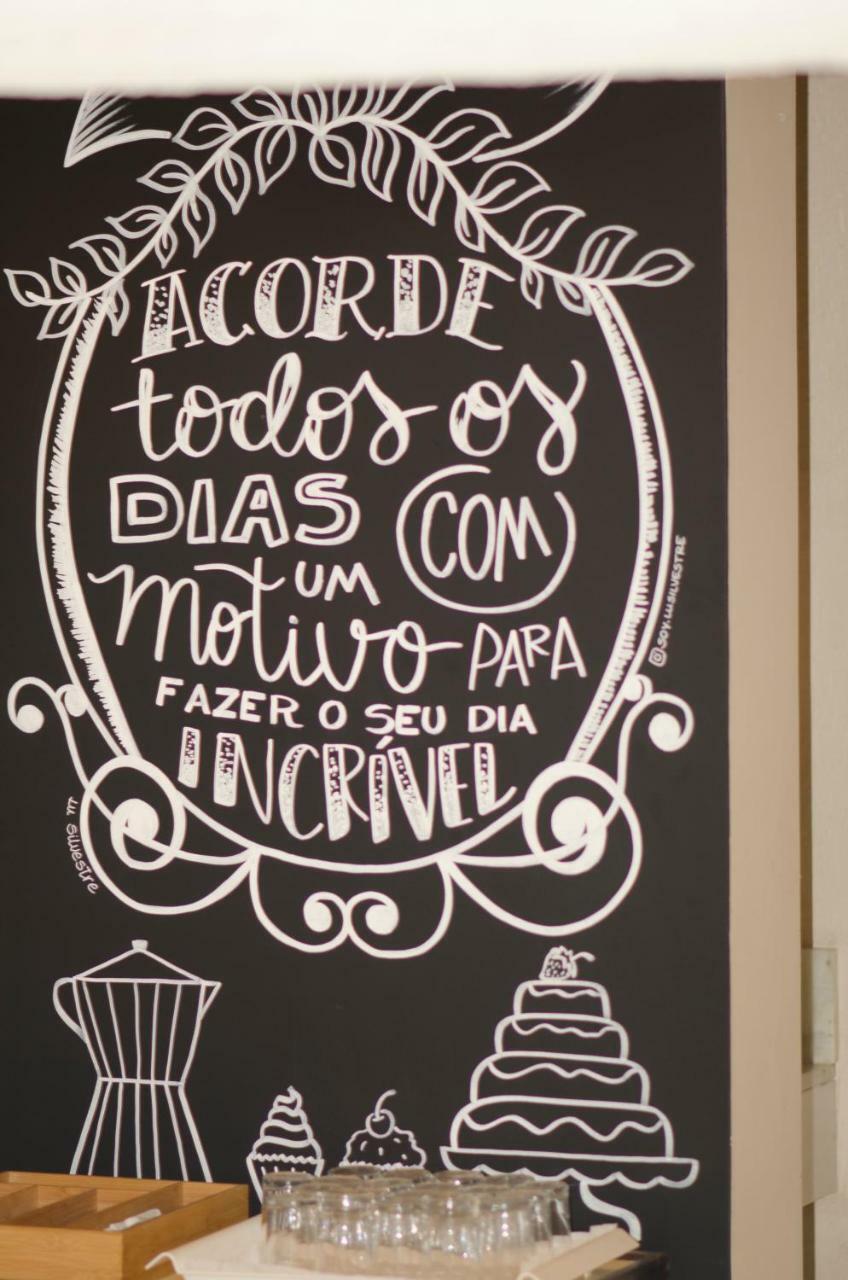 ACORDE
todos os
DIAS COM
UM
motivo PARA
FAZER O SEU DIA
INCRÍVEL
@SOY.LUSILVESTRE
Lu Silvestre